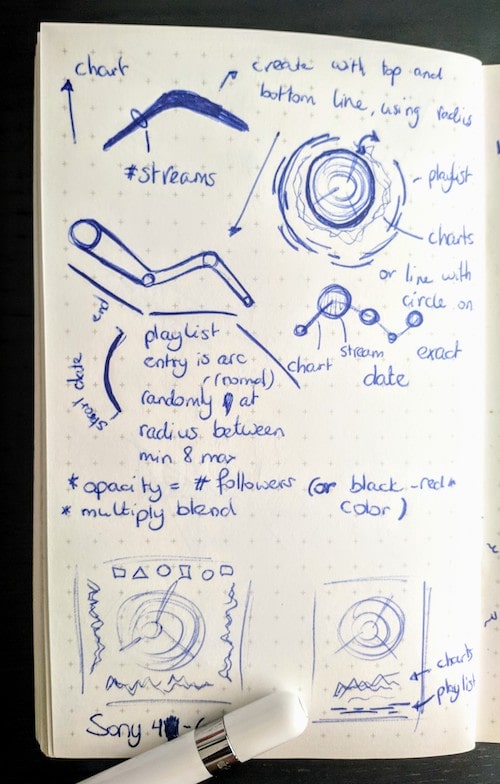 chart
create with top and
bottom line, using radius
#streams
playlist
charts
or line with
circle on
exact
date
chart
stream
start date
playlist
entry is arc
r(normal)
randomly at
radius between
min & max
* opacity = # followers (or black-red
color)
* multiply blend
charts
playlist
Sony